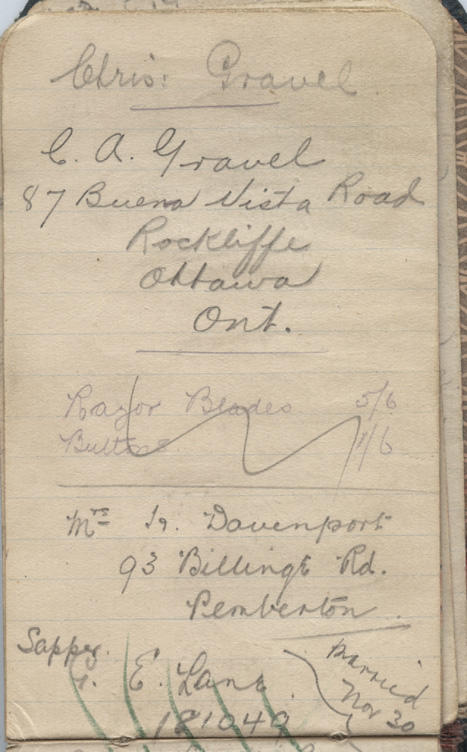 Chris: Gravel
C. A. Gravel
87 Buena Vista Road
Rockliffe
Ottawa
Ont.
Razor Blades 5/6
1/6
Mrs Davenport
93 Billinge Rd.
Pemberton.
Sapper.
E. Lane
181049
Married
Nov 30